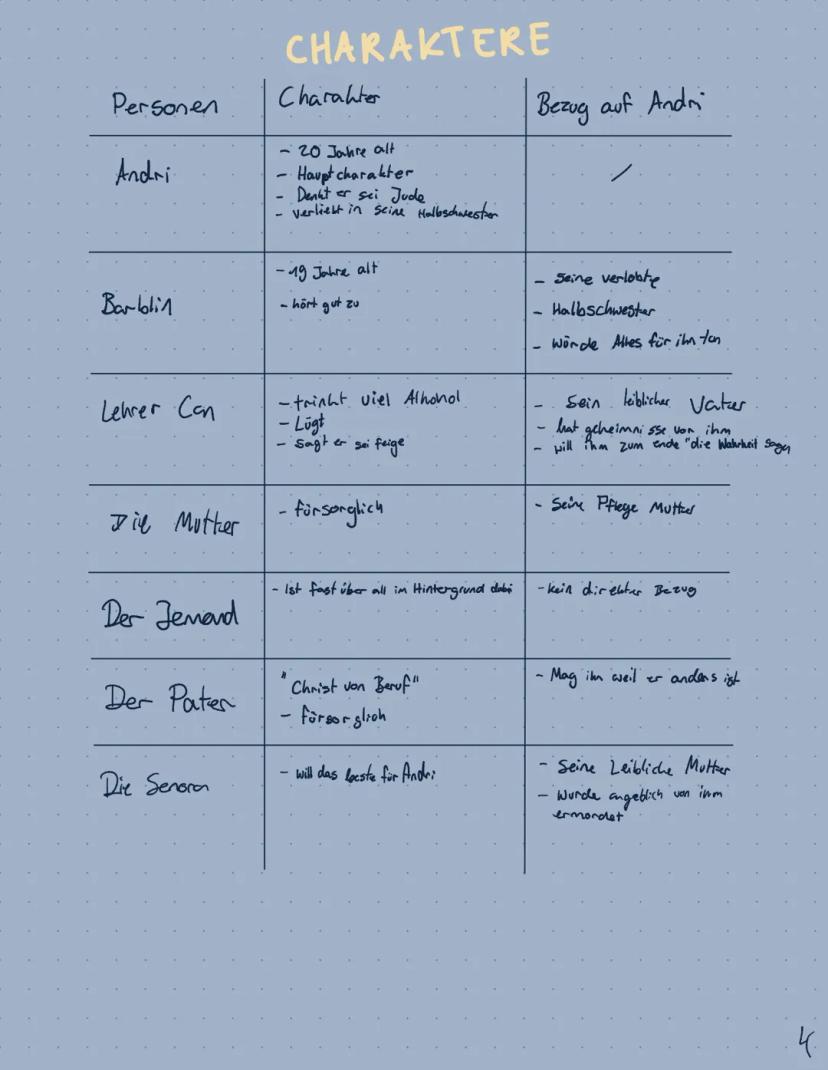 CHARAKTERE
Personen
Charakter
Bezug auf Andri
Andri
- 20 Jahre alt
- Hauptcharakter
- Denkt er sei Jude
- verliebt in seine Halbschwester
/
Barblin
- 19 Jahre alt
- hört gut zu
- Seine verlobte
- Halbschwester
- Würde Alles für ihn tun
Lehrer Can
- trinkt viel Alkohol
- Lügt
- sagt er sei feige
- Sein leiblicher Vater
- hat geheimnisse vor ihm
- will ihm zum ende "die Wahrheit sagen
Die Mutter
- fürsorglich
- Seine Pflege Mutter
Der Jemand
- Ist fast über all im Hintergrund dabei
- kein direkter Bezug
Der Pater
"Christ von Beruf"
- fürsorglich
- Mag ihn weil er anders ist
Die Senora
- will das beste für Andri
- Seine Leibliche Mutter
- Wurde angeblich von ihm
ermordet
4